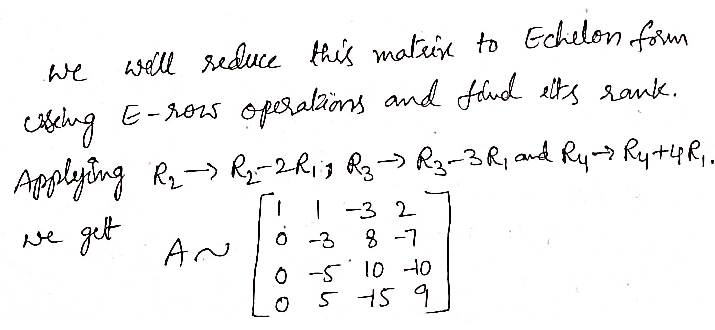 we will reduce this matrix to Echelon form
using E-row operations and find its rank.
Applying R₂ → R₂-2R₁, R₃ → R₃-3R₁ and R₄ → R₄+4R₁.
we get A ~ [1 1 -3 2
0 -3 8 -7
0 -5 10 -10
0 5 -15 9]